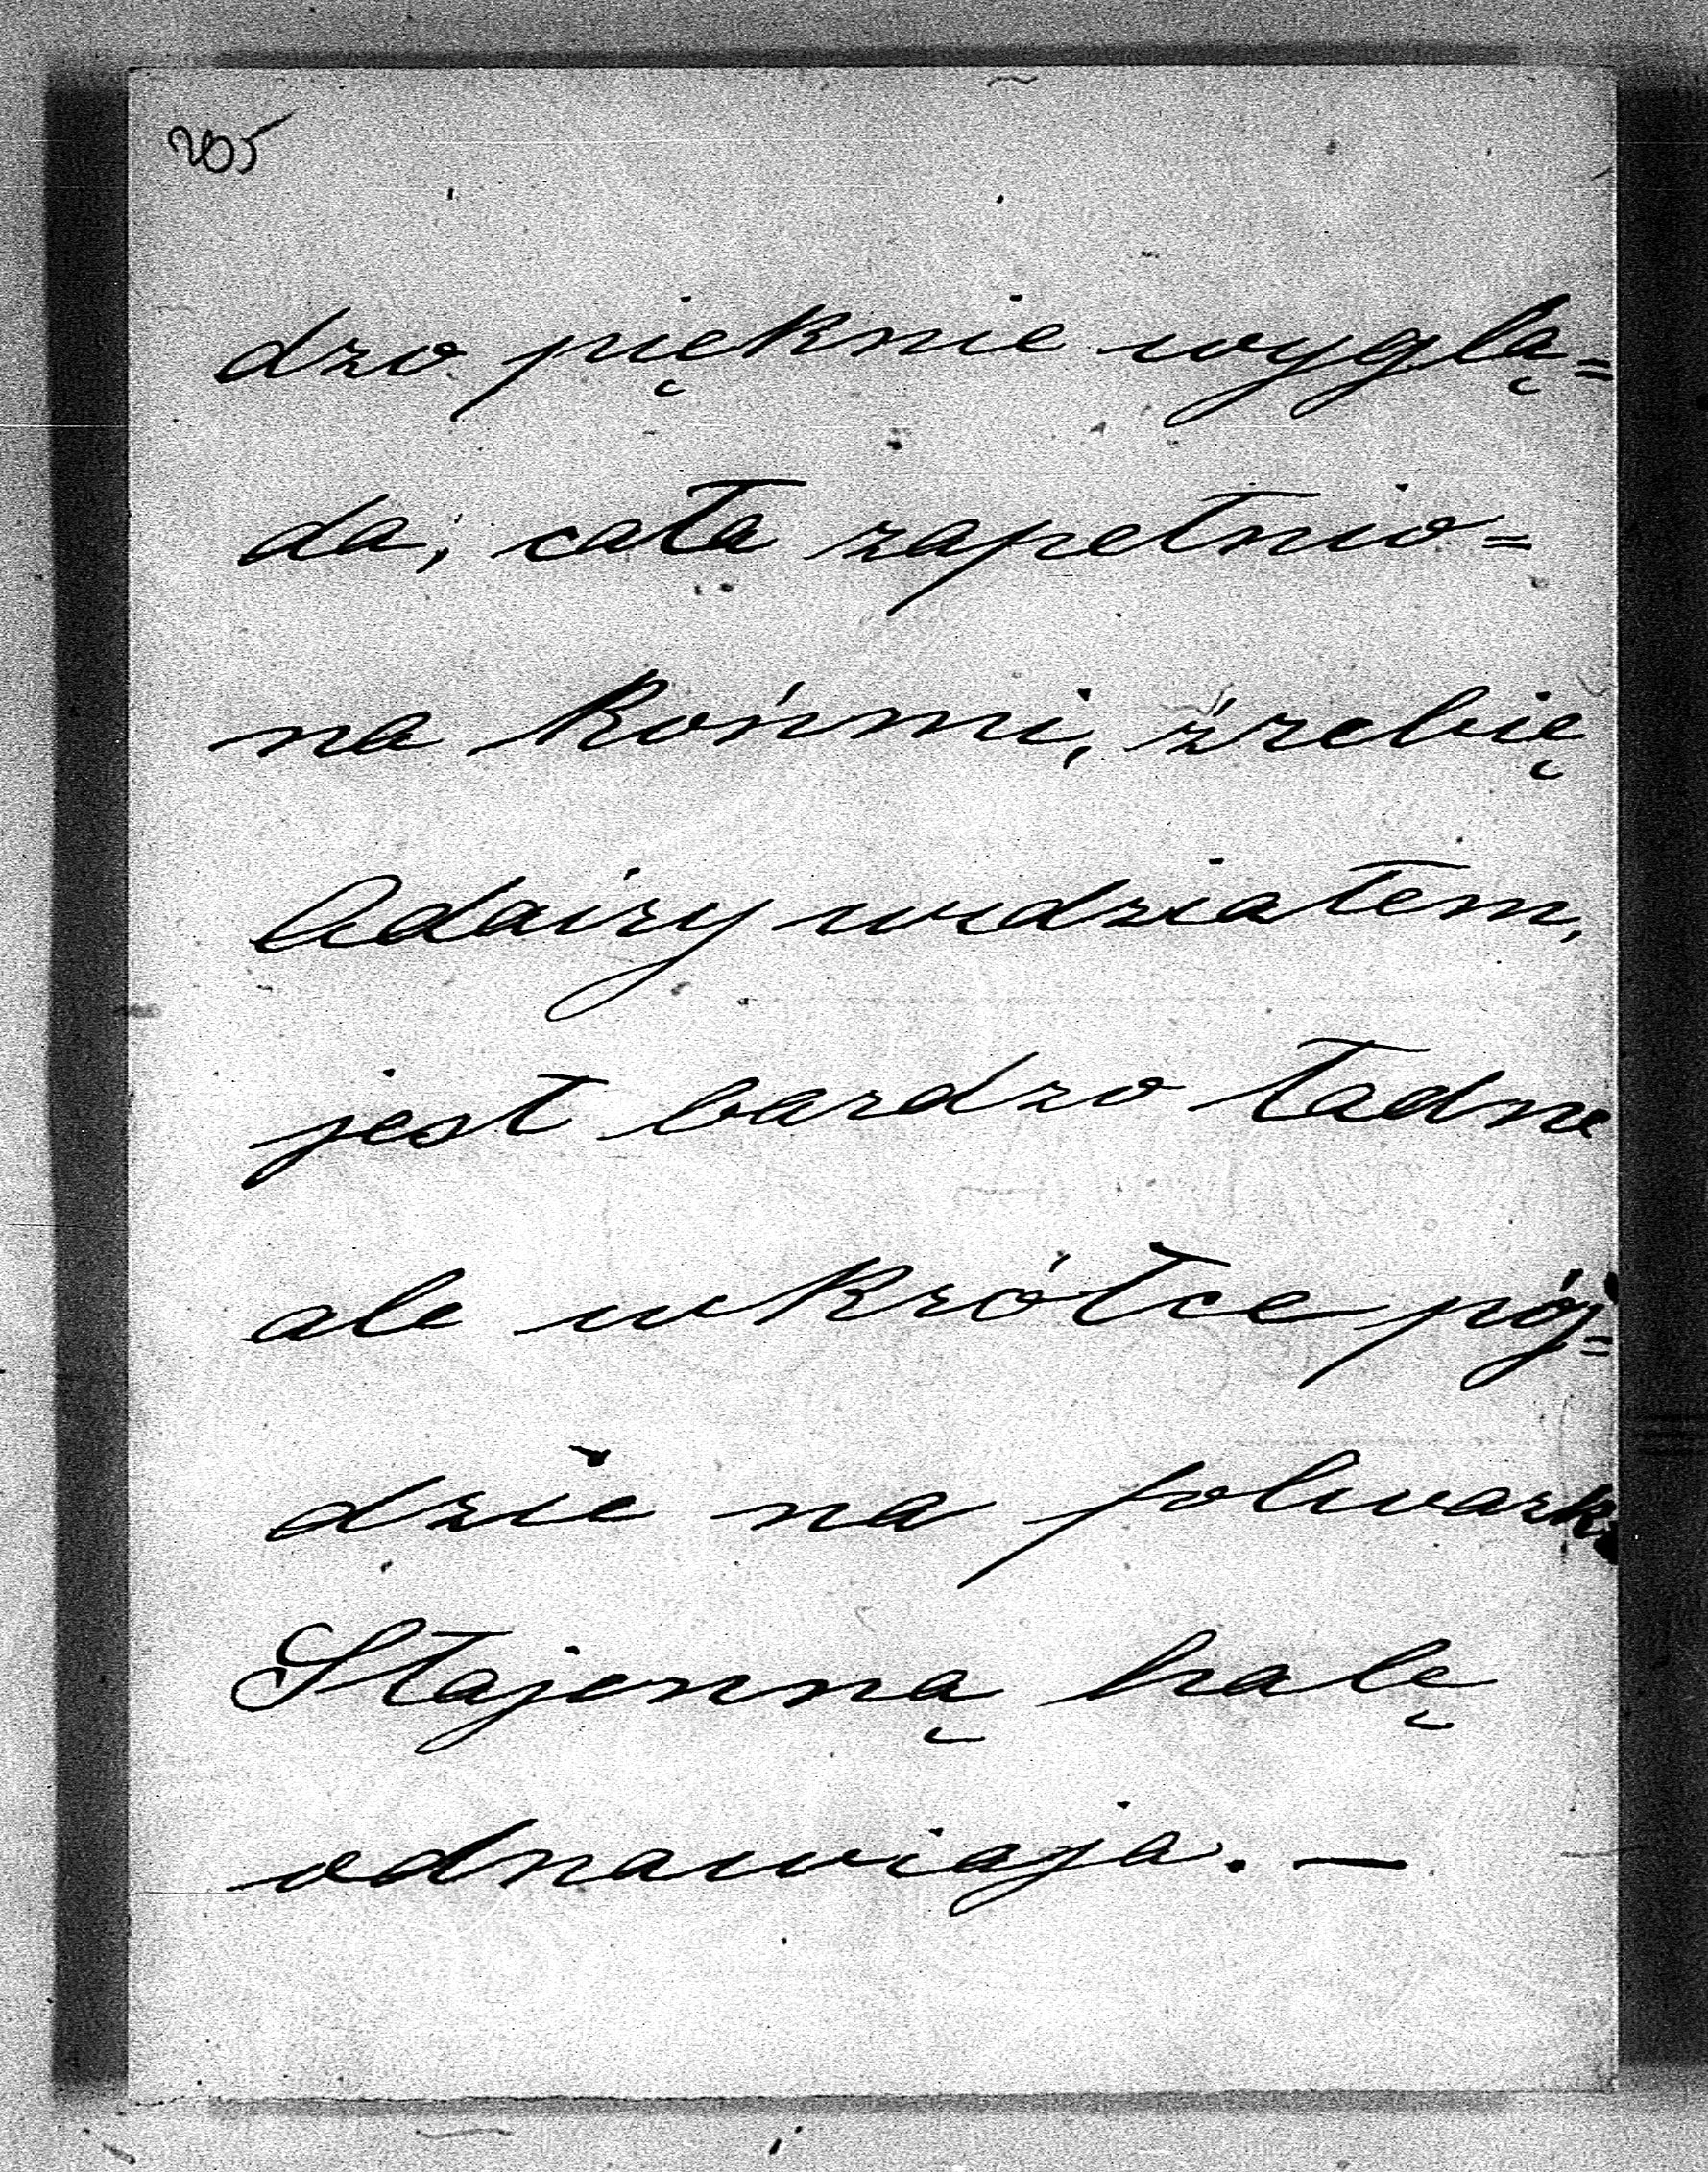 205
dzo pięknie wyglą=
da, cała zapełnio=
na końmi, źrebię
Adairy widziałem,
jest bardzo ładne
ale wkrótce pój=
dzie na folwark.
Stajenną halę
odnawiaja. —